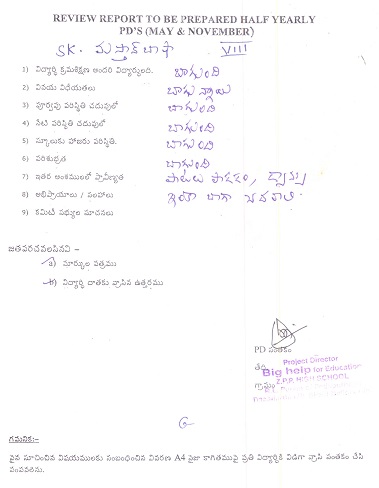 REVIEW REPORT TO BE PREPARED HALF YEARLY
PD'S (MAY & NOVEMBER)
SK. మస్తాన్ బాషా VIII
1) విద్యార్థి క్రమశిక్షణ అందరి విద్యార్థులది. బాగుంది
2) వినయ విధేయతలు బాగున్నాయి
3) పూర్వపు పరిస్థితి చదువులో బాగుంది
4) నేటి పరిస్థితి చదువులో బాగుంది
5) స్కూలుకు హాజరు పరిస్థితి. బాగుంది
6) పరిశుభ్రత బాగుంది
7) ఇతర అంశములలో ప్రావీణ్యత పాటలు పాడడం, డ్రాన్సు
8) అభిప్రాయాలు / సలహాలు ఇంకా బాగా చదవాలి
9) కమిటీ సభ్యుల సూచనలు
జతపరచవలసినవి :-
a) మార్కుల పత్రము
b) విద్యార్థి దాతకు వ్రాసిన ఉత్తరము
PD సంతకం
తేది
Project Director
Big help for Education
Z.P.P. HIGH SCHOOL
గ్రామం
6
గమనిక:-
పైన సూచించిన విషయములకు సంబంధించిన వివరణ A4 సైజు కాగితముపై ప్రతి విద్యార్థికి విడిగా వ్రాసి సంతకం చేసి
పంపవలెను.